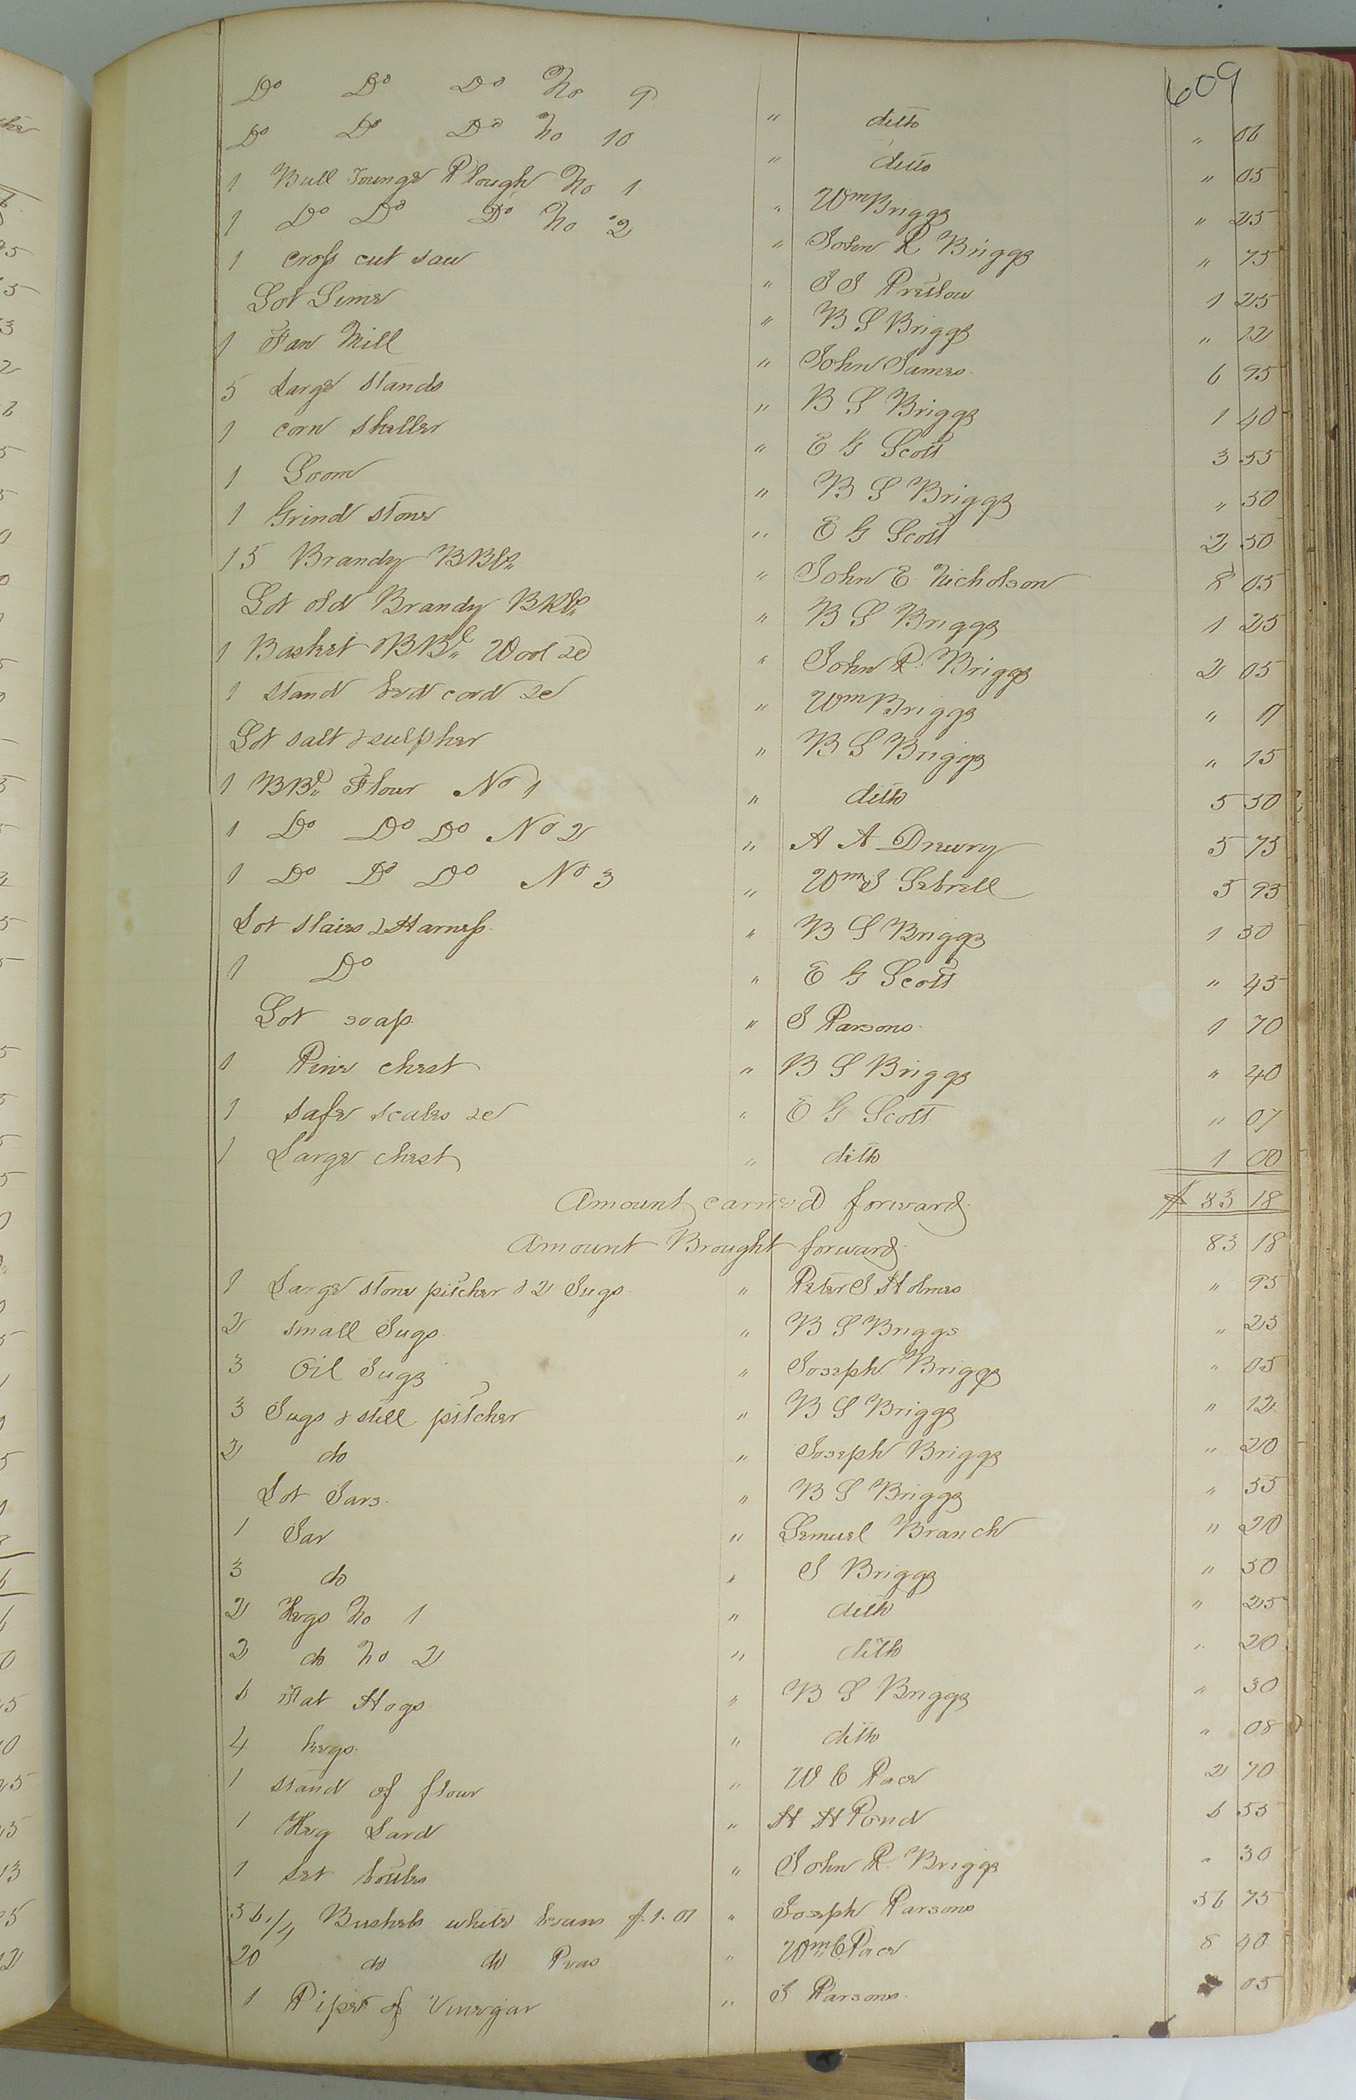 609
Do Do Do No 9 " ditto " 06
Do Do Do No 10 " ditto " 05
1 Bull Tounge Plough No 1 " Wm Briggs " 25
1 Do Do Do No 2 " John R Briggs " 75
1 cross cut saw " J J Pretlow 1 25
Lot Lime " B S Briggs " 12
1 Fan Mill " John James 6 95
5 Large stands " B S Briggs 1 40
1 corn sheller " E G Scott 3 55
1 Loom " B S Briggs " 50
1 Grind stone " E G Scott 2 50
15 Brandy BBls " John E Nicholson 8 05
Lot old Brandy BBls " B S Briggs 1 25
1 Basket & BBl Wool &c " John R. Briggs 2 05
1 stand bed cord &c " Wm Briggs "
Lot salt & sulpher " B S Briggs " 15
1 BBl Flour No 1 " ditto 5 50
1 Do Do Do No 2 " A A Drewry 5 75
1 Do Do Do No 3 " Wm J Sebrell 5 95
Lot slaies & Harness " B S Briggs 1 30
1 Do " E G Scott " 45
Lot soap " J Parsons 1 70
1 Pine chest " B S Briggs " 40
1 safe scales &c " E G Scott " 07
1 Large chest " ditto 1 00
Amount carried forward $ 83 18
Amount Brought forward 83 18
1 Large stone pitcher & 2 Jugs " Peter J Holmes " 95
2 small Jugs " B S Briggs " 25
3 Oil Jugs " Joseph Briggs " 05
3 Jugs & still pitcher " B S Briggs " 12
2 do " Joseph Briggs " 20
Lot Jars " B S Briggs " 55
1 Jar " Lemuel Branch " 20
3 do " J Briggs " 50
2 Kegs No 1 " ditto " 25
2 do No 2 " ditto " 20
6 Fat Hogs " B S Briggs " 30
4 kegs " ditto " 08
1 stand of flour " W C Pace 2 70
1 Keg Lard " H H Pond 6 55
1 set bottles " John R. Briggs " 30
36 1/4 Bushels white beans $1.01 " Joseph Parsons 36 75
20 do do Peas " Wm C Pace 8 40
1 Pipe of Vinegar " J Parsons 05